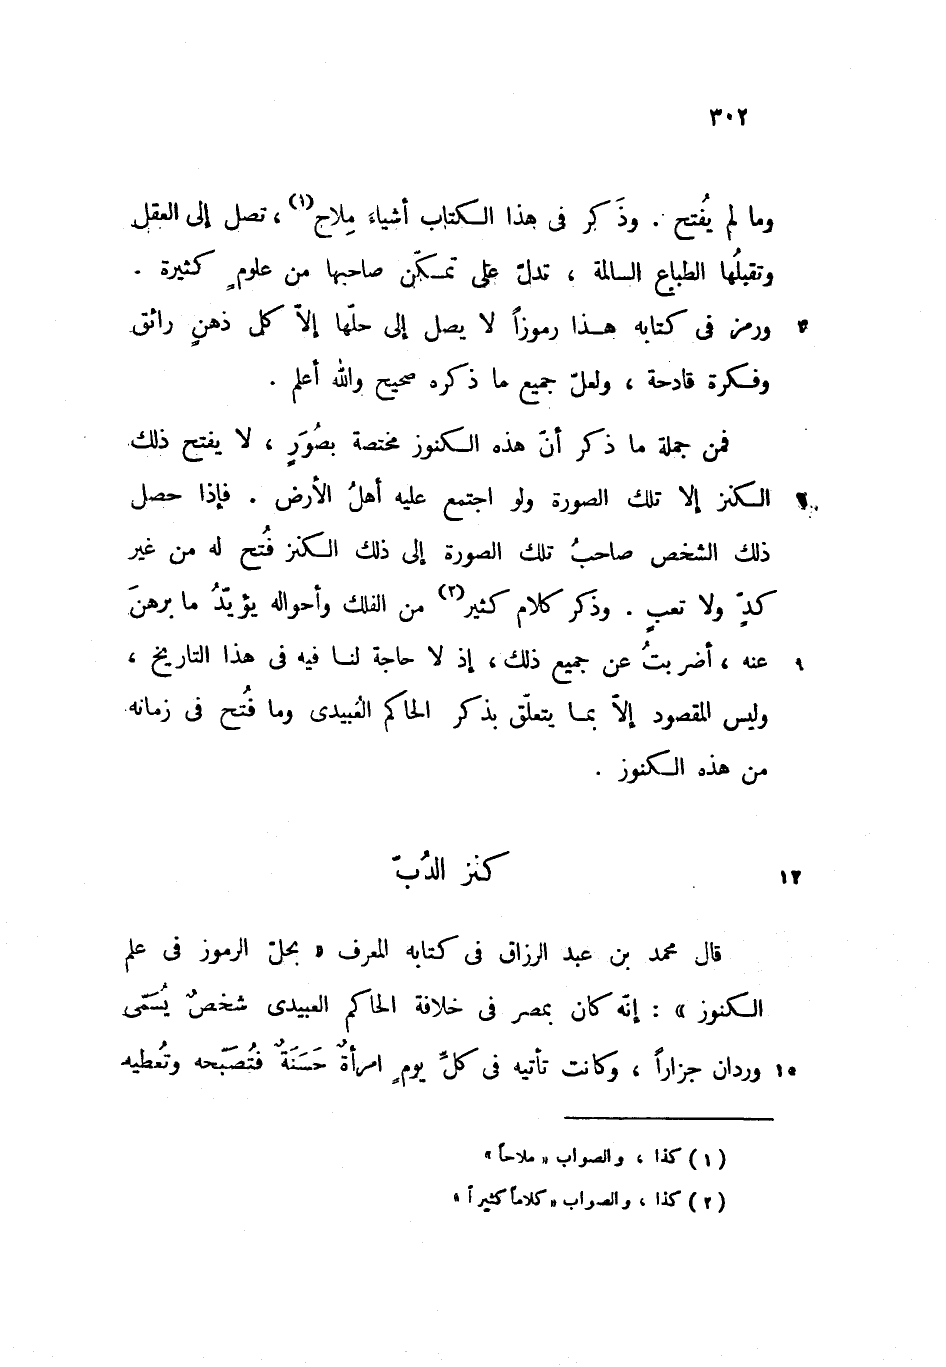 ٣٠٢
وما لم يُفتح . وذَكر فى هذا الكتاب أشياءَ مِلاح(١) ، تصل إلى العقل
وتقبلُها الطباع السالمة ، تدلّ على تمكّن صاحبها من علومٍ كثيرة .
٣ ورمز فى كتابه هذا رموزاً لا يصل إلى حلّها إلاّ كل ذهنٍ رائق
وفكرة قادحة ، ولعلّ جميع ما ذكره صحيح والله أعلم .
فمن جملة ما ذكر أنّ هذه الكنوز مختصة بصُوَرٍ ، لا يفتح ذلك
٦ الكنز إلا تلك الصورة ولو اجتمع عليه أهلُ الأرض . فإذا حصل
ذلك الشخص صاحبُ تلك الصورة إلى ذلك الكنز فُتح له من غير
كدٍّ ولا تعبٍ . وذكر كلام كثير(٢) من الفلك وأحواله يؤيّدُ ما برهنَ
٩ عنه ، أضربتُ عن جميع ذلك ، إذ لا حاجة لنا فيه فى هذا التاريخ ،
وليس المقصود إلاّ بما يتعلّق بذكر الحاكم العُبيدى وما فُتح فى زمانه
من هذه الكنوز .
١٢ كنز الدُبّ
قال محمد بن عبد الرزاق فى كتابه المعرف « بحلّ الرموز فى علم
الكنوز » : إنّه كان بمصر فى خلافة الحاكم العبيدى شخصٌ يُسَمّى
١٥ وردان جزاراً ، وكانت تأتيه فى كلِّ يومٍ امرأةٌ حَسَنَةٌ فتُصَبّحه وتُعطيه
(١) كذا ، والصواب « ملاحاً »
(٢) كذا ، والصواب « كلاماً كثيراً »